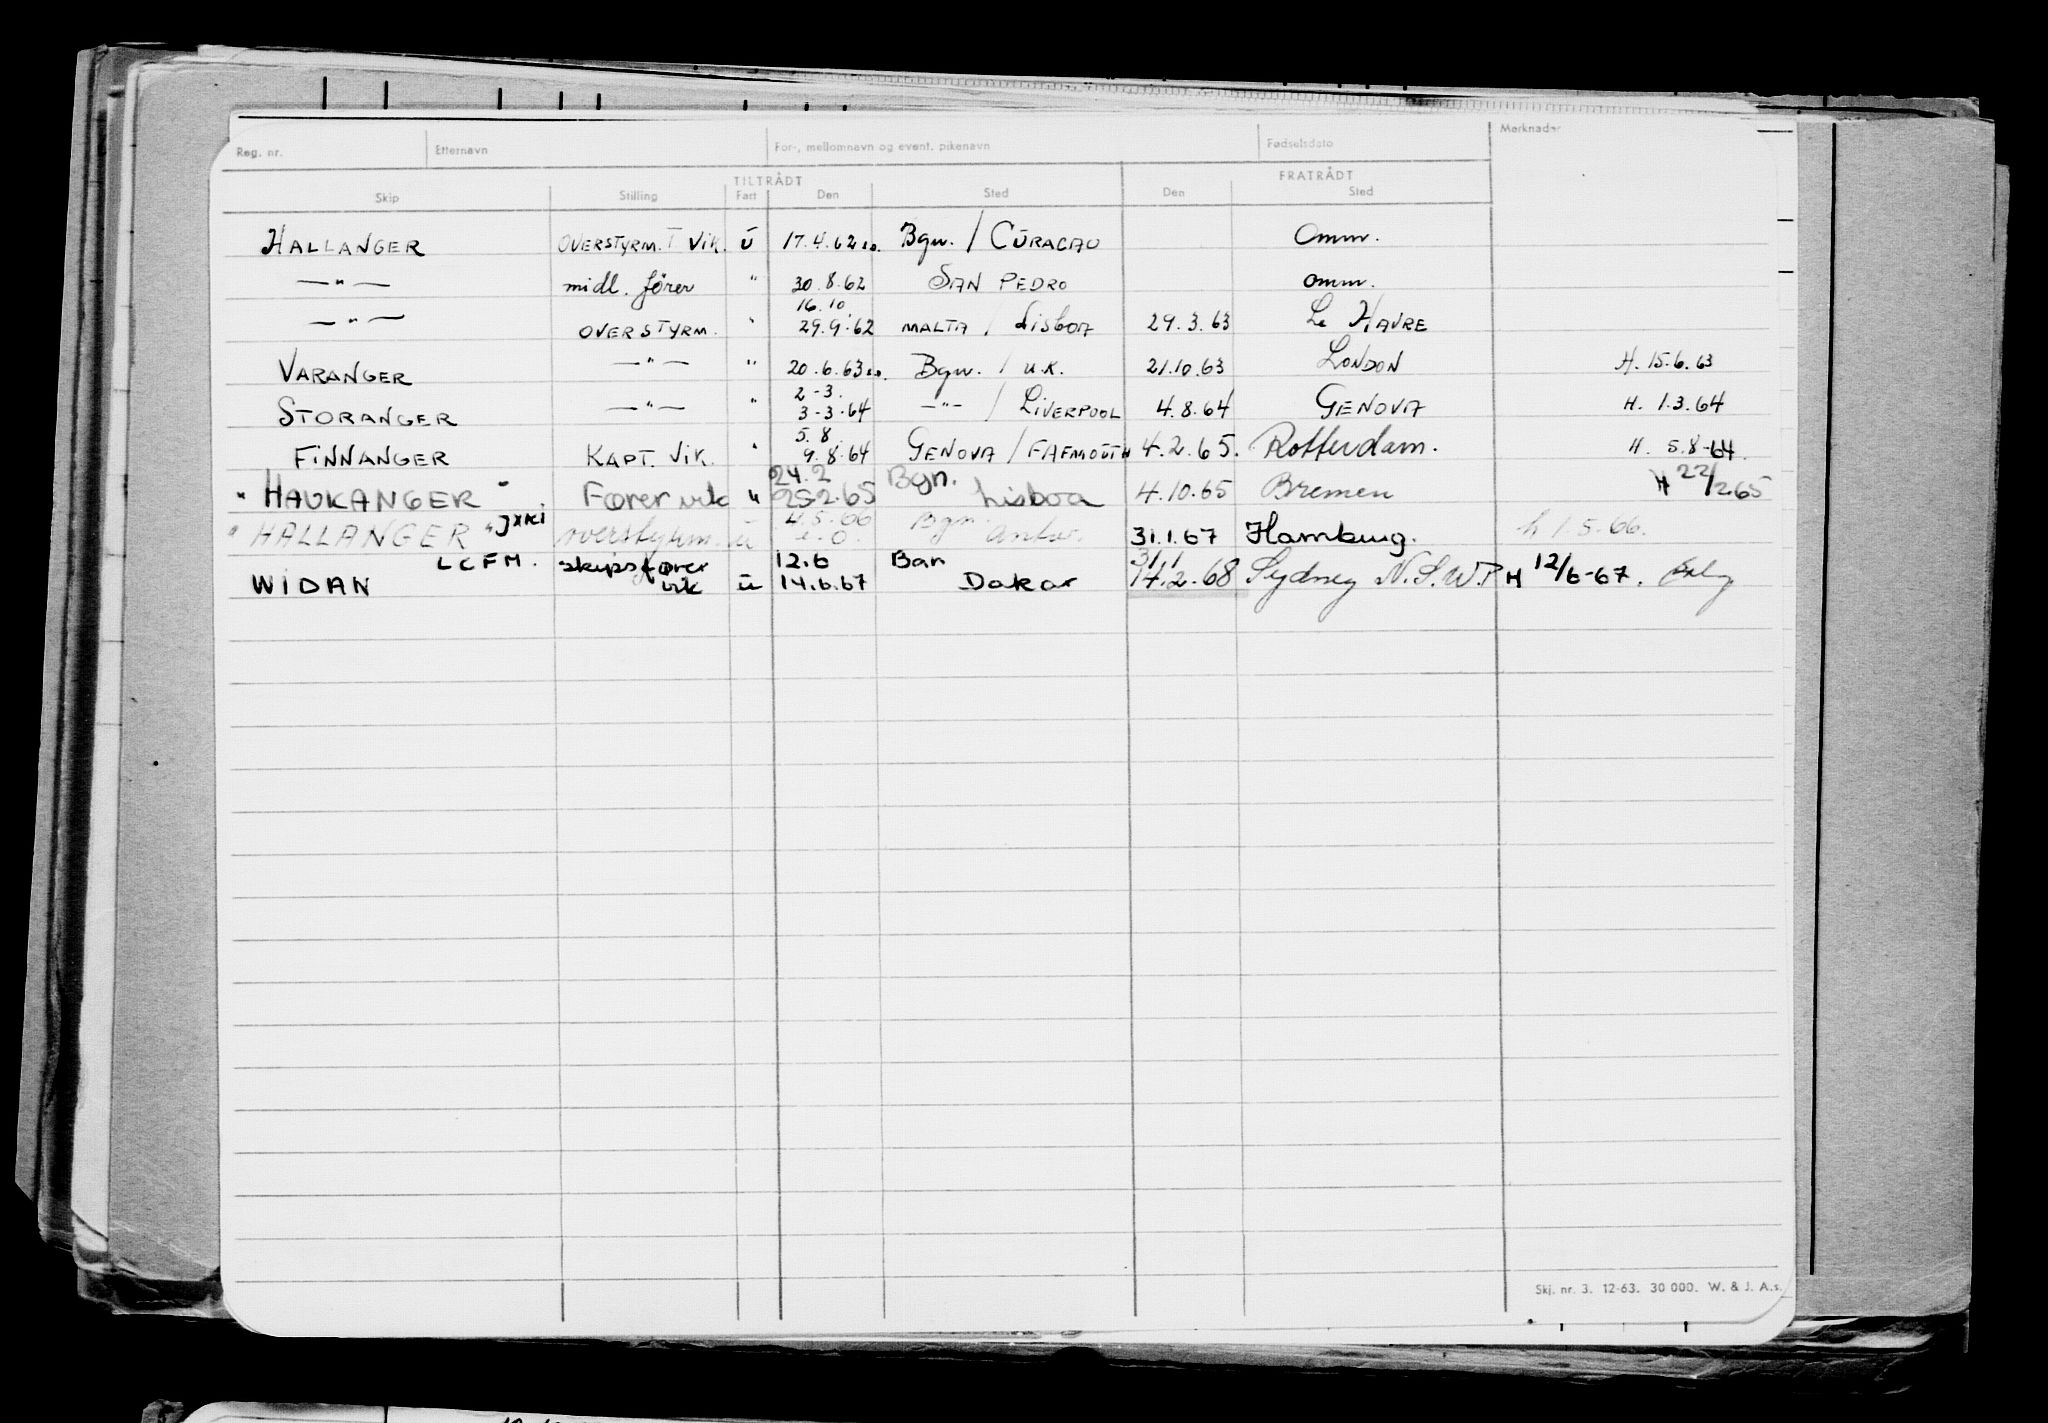 Reg. nr. Etternavn For-, mellomnavn og event. pikenavn Fødselsdato Merknader
TILTRÅDT FRATRÅDT
Skip Stilling Fart Den Sted Den Sted
HALLANGER OVERSTYRM. T. VIK. ú 17.4.62 Bgn. / CÜRACAO Omm.
—"— midl. fører " 30.8.62 SAN PEDRO omm.
16.10.
—"— OVERSTYRM. " 29.9.62 MALTA / Lisboa 29.3.63 Le HAVRE
VARANGER —"— " 20.6.63 Bgn. / U.K. 21.10.63 LONDON H. 15.6.63
2-3.
STORANGER —"— " 3-3-64 —"— / LIVERPOOL 4.8.64 GENOVA H. 1.3.64
5.8.
FINNANGER KAPT. VIK. " 9.8.64 GENOVA / FAFMOUTH 4.2.65. Rotterdam. H. 5.8-64.
24.2 Bgn.
" HAUKANGER " Fører vik " 25-2.65 Lisboa 4.10.65 Bremen H 22/2.65
" HALLANGER " JXKI overstyrm. ú 4.5.66 Bgn. Antw. 31.1.67 Hamburg. h 1.5.66.
LCFM. skipsfører 12.6 Ban 31/1
WIDAN vik ú 14.6.67 Dakar 14.2.68 Sydney N.S.W. H 12/6-67.
Skj. nr. 3. 12-63. 30 000. W. & J. A.s.